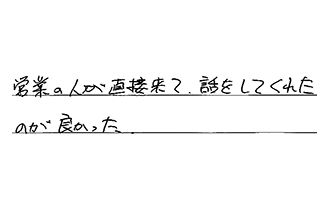 営業の人が直接来て、話をしてくれた
のが良かった。